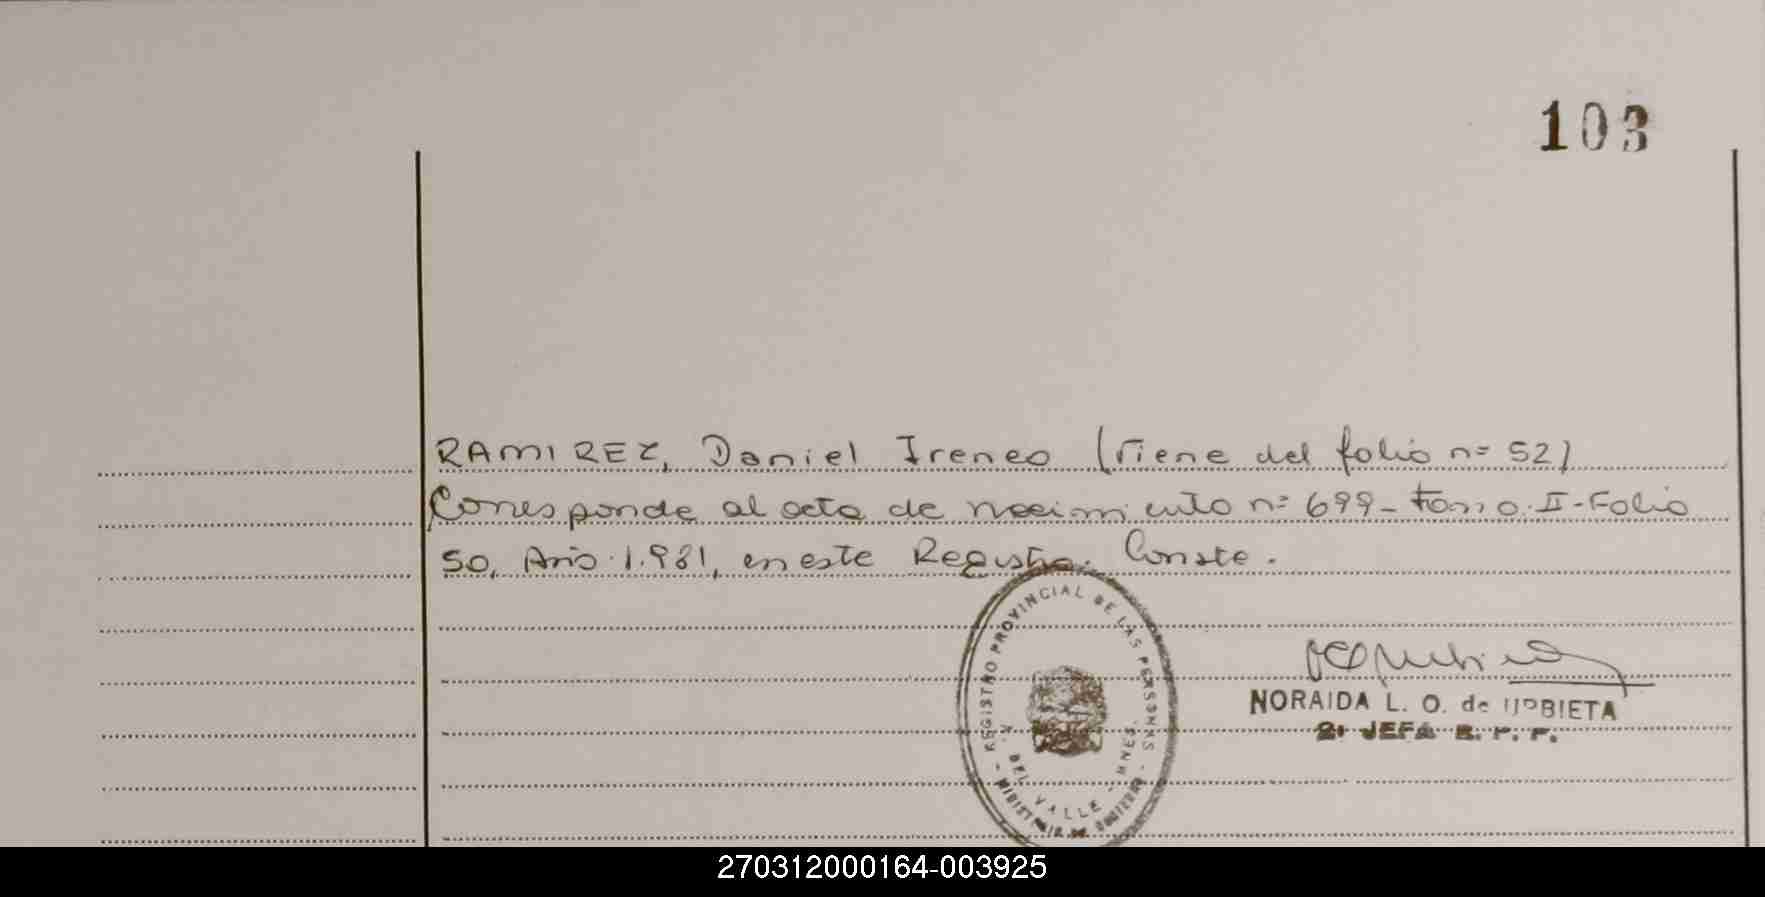 103
RAMIREZ, Daniel Ireneo (Viene del folio n= 52)
Corresponde al acta de nacimiento n= 699 - Tomo. II - Folio
50, Año 1.981, en este Registro. Conste.
REGISTRO PROVINCIAL DE LAS PERSONAS
DEL VALLE
NORAIDA L. O. de URBIETA
JEFA R. P. P.
270312000164-003925